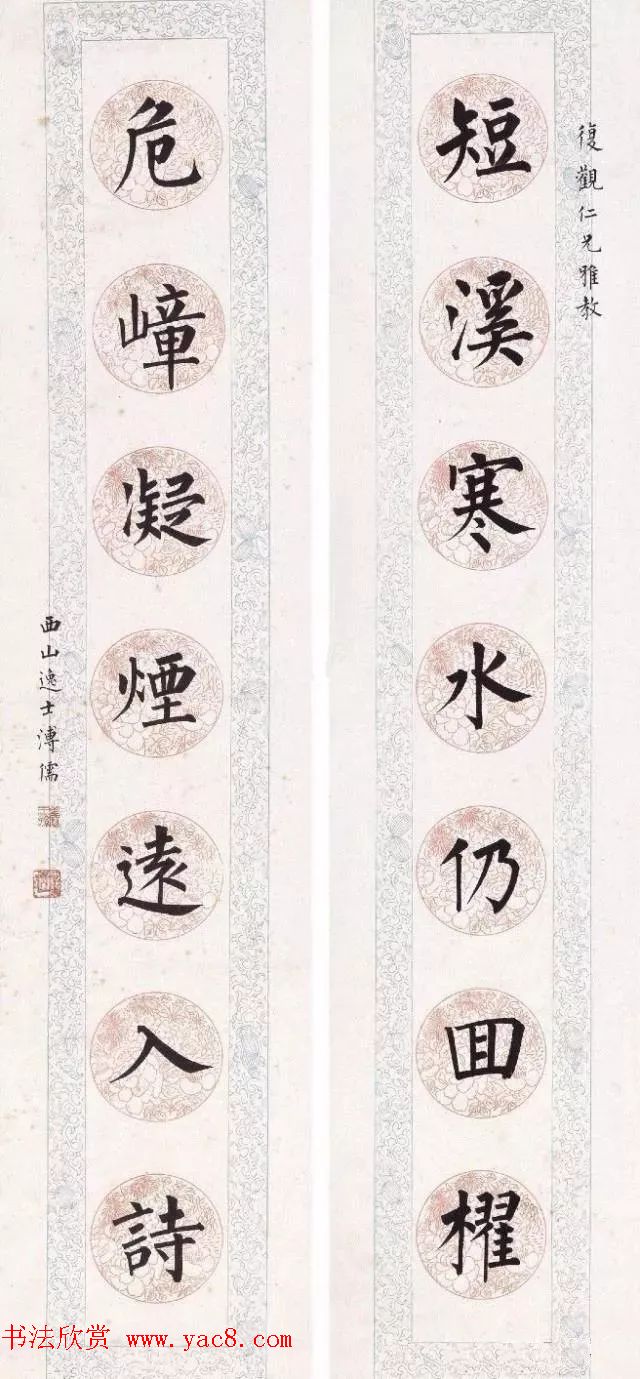 復觀仁兄雅教
短溪寒水仍囬櫂
危嶂凝煙遠入詩
西山逸士溥儒
书法欣赏 www.yac8.com